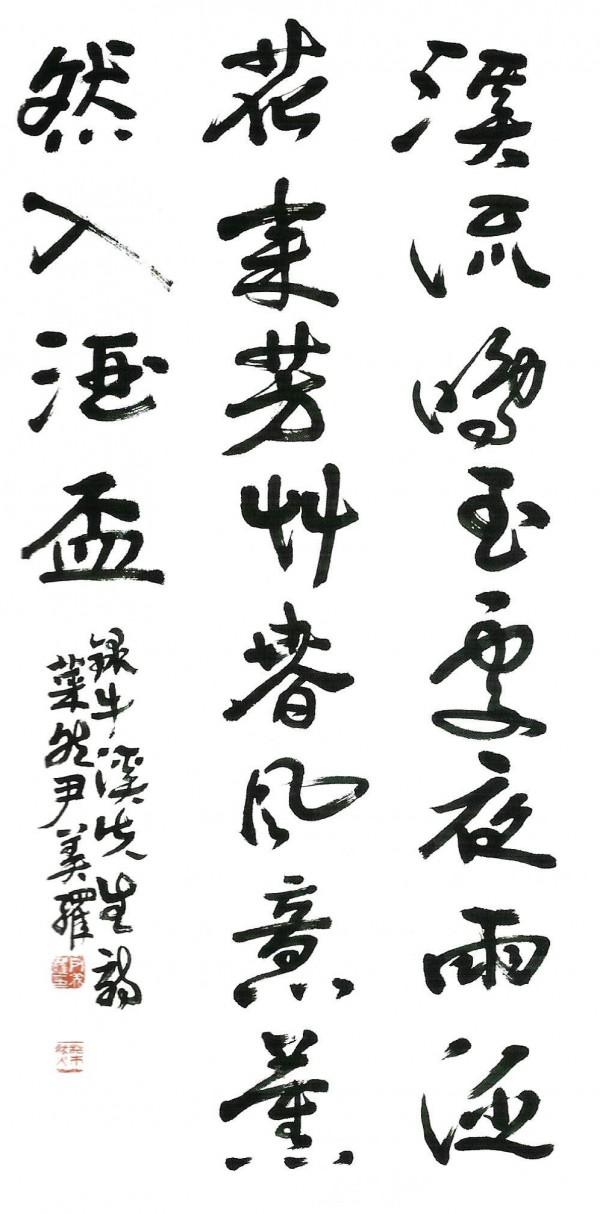 溪流鳴玉處夜雨泛
花來芳艸春風意薰
然入酒盃
錄牛溪先生詩
菜然尹美羅